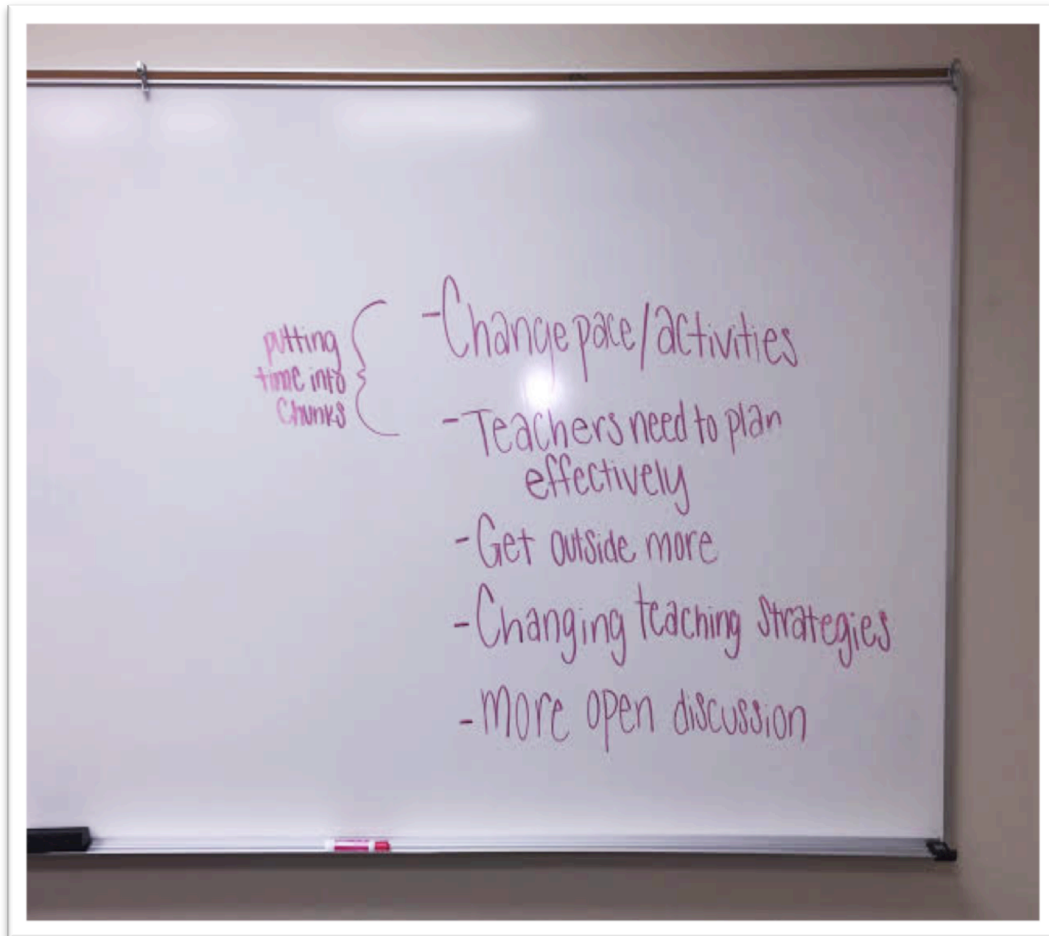 putting
time into
Chunks
-Change pace/activities
-Teachers need to plan
effectively
-Get outside more
-Changing teaching strategies
-more open discussion